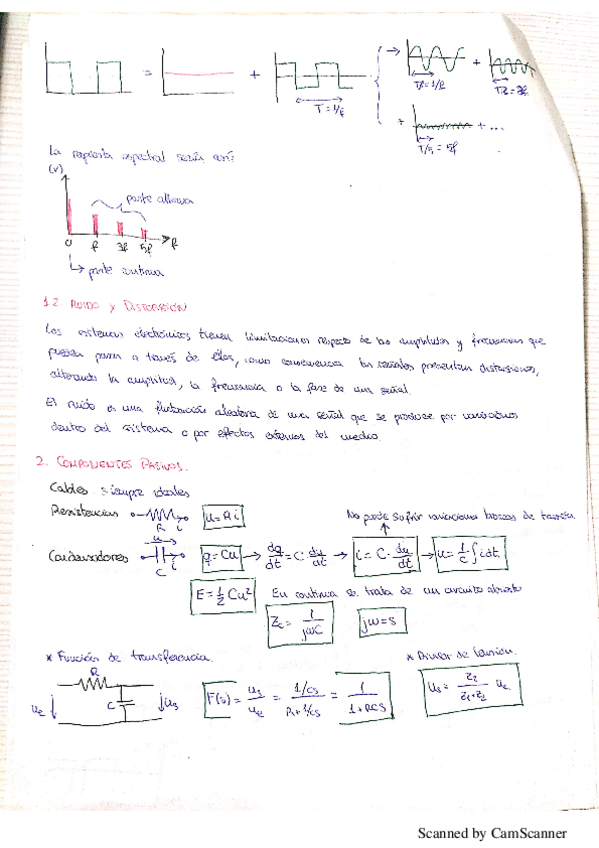 = + → +
T = 1/f
T/1 = 1/f
T/3 = 3f
+ + ...
T/5 = 5f
La respuesta espectral sería así:
(V)
parte alterna
0 f 3f 5f f
parte continua
1.2. RUIDO Y DISTORSIÓN
Los sistemas electrónicos tienen limitaciones respecto de las amplitudes y frecuencias que
pueden pasar a través de ellos, como consecuencia las señales presentan distorsiones,
alterando la amplitud, la frecuencia o la fase de una señal.
El ruido es una fluctuación aleatoria de una señal que se produce por variaciones
dentro del sistema o por efectos externos del medio.
2. COMPONENTES PASIVOS.
Cables siempre ideales
Resistencias R i u = R i
No puede sufrir variaciones bruscas de tensión
Condensadores u C i q = Cu → dq/dt = C · du/dt → i = C · du/dt → u = 1/C ∫ i dt
E = 1/2 Cu² En continua se trata de un circuito abierto
Zc = 1/jωC jω = s
* Función de transferencia. * Divisor de tensión.
ue R C us F(s) = us/ue = 1/Cs / R + 1/Cs = 1 / 1 + RCs us = Z2 / Z1 + Z2 ue
Scanned by CamScanner